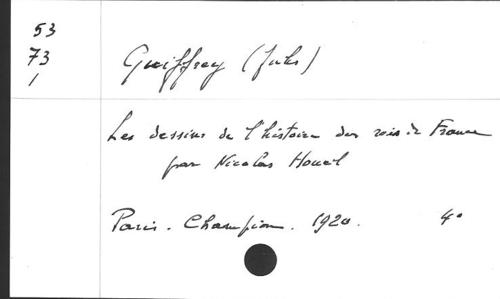 53
73
1
Guiffrey (Jules)
Les dessins de l'histoire des rois de France
par Nicolas Houel
Paris. Champion. 1920. 4°